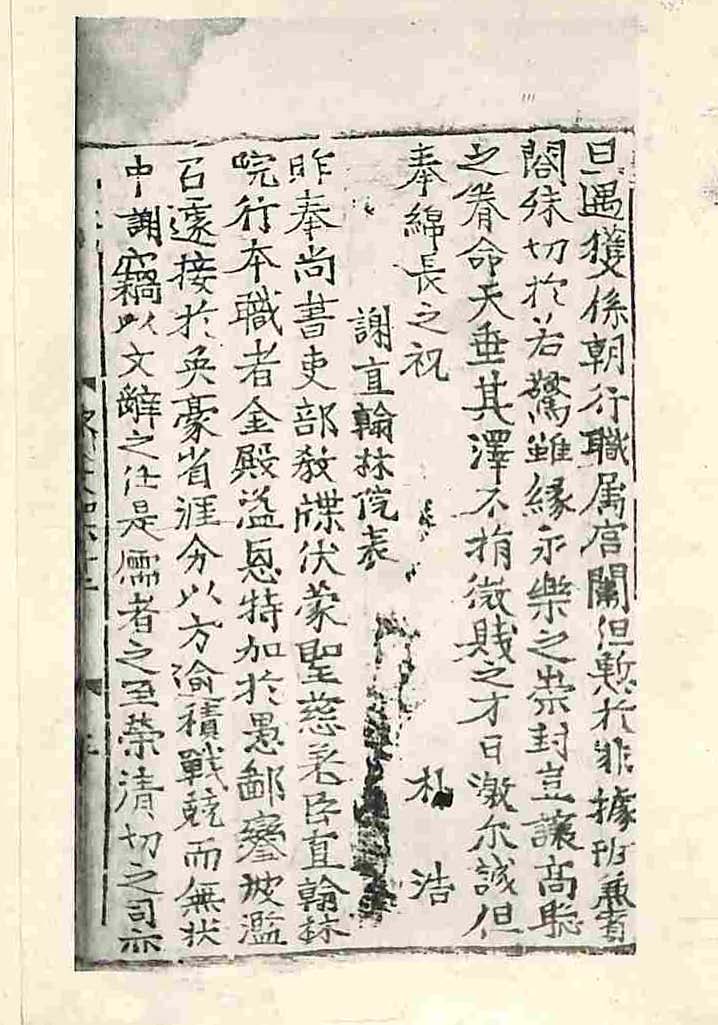 旦遇獲係朝行職属宮闈但慙於非據班兼賓
閤殊切於若驚雖緣永樂之崇封豈讓高聡
之眷命天垂其澤不捐微賤之才日激尓誠但
奉綿長之祝
謝直翰林院表
朴浩
昨奉尚書吏部教牒伏蒙聖慈差臣直翰林
院行本職者金殿溢恩特加於愚鄙鑾坡濫
召遽接於英豪省涯分以方逾積戰兢而無狀
中謝竊以文辭之任是儒者之至榮清切之司亦